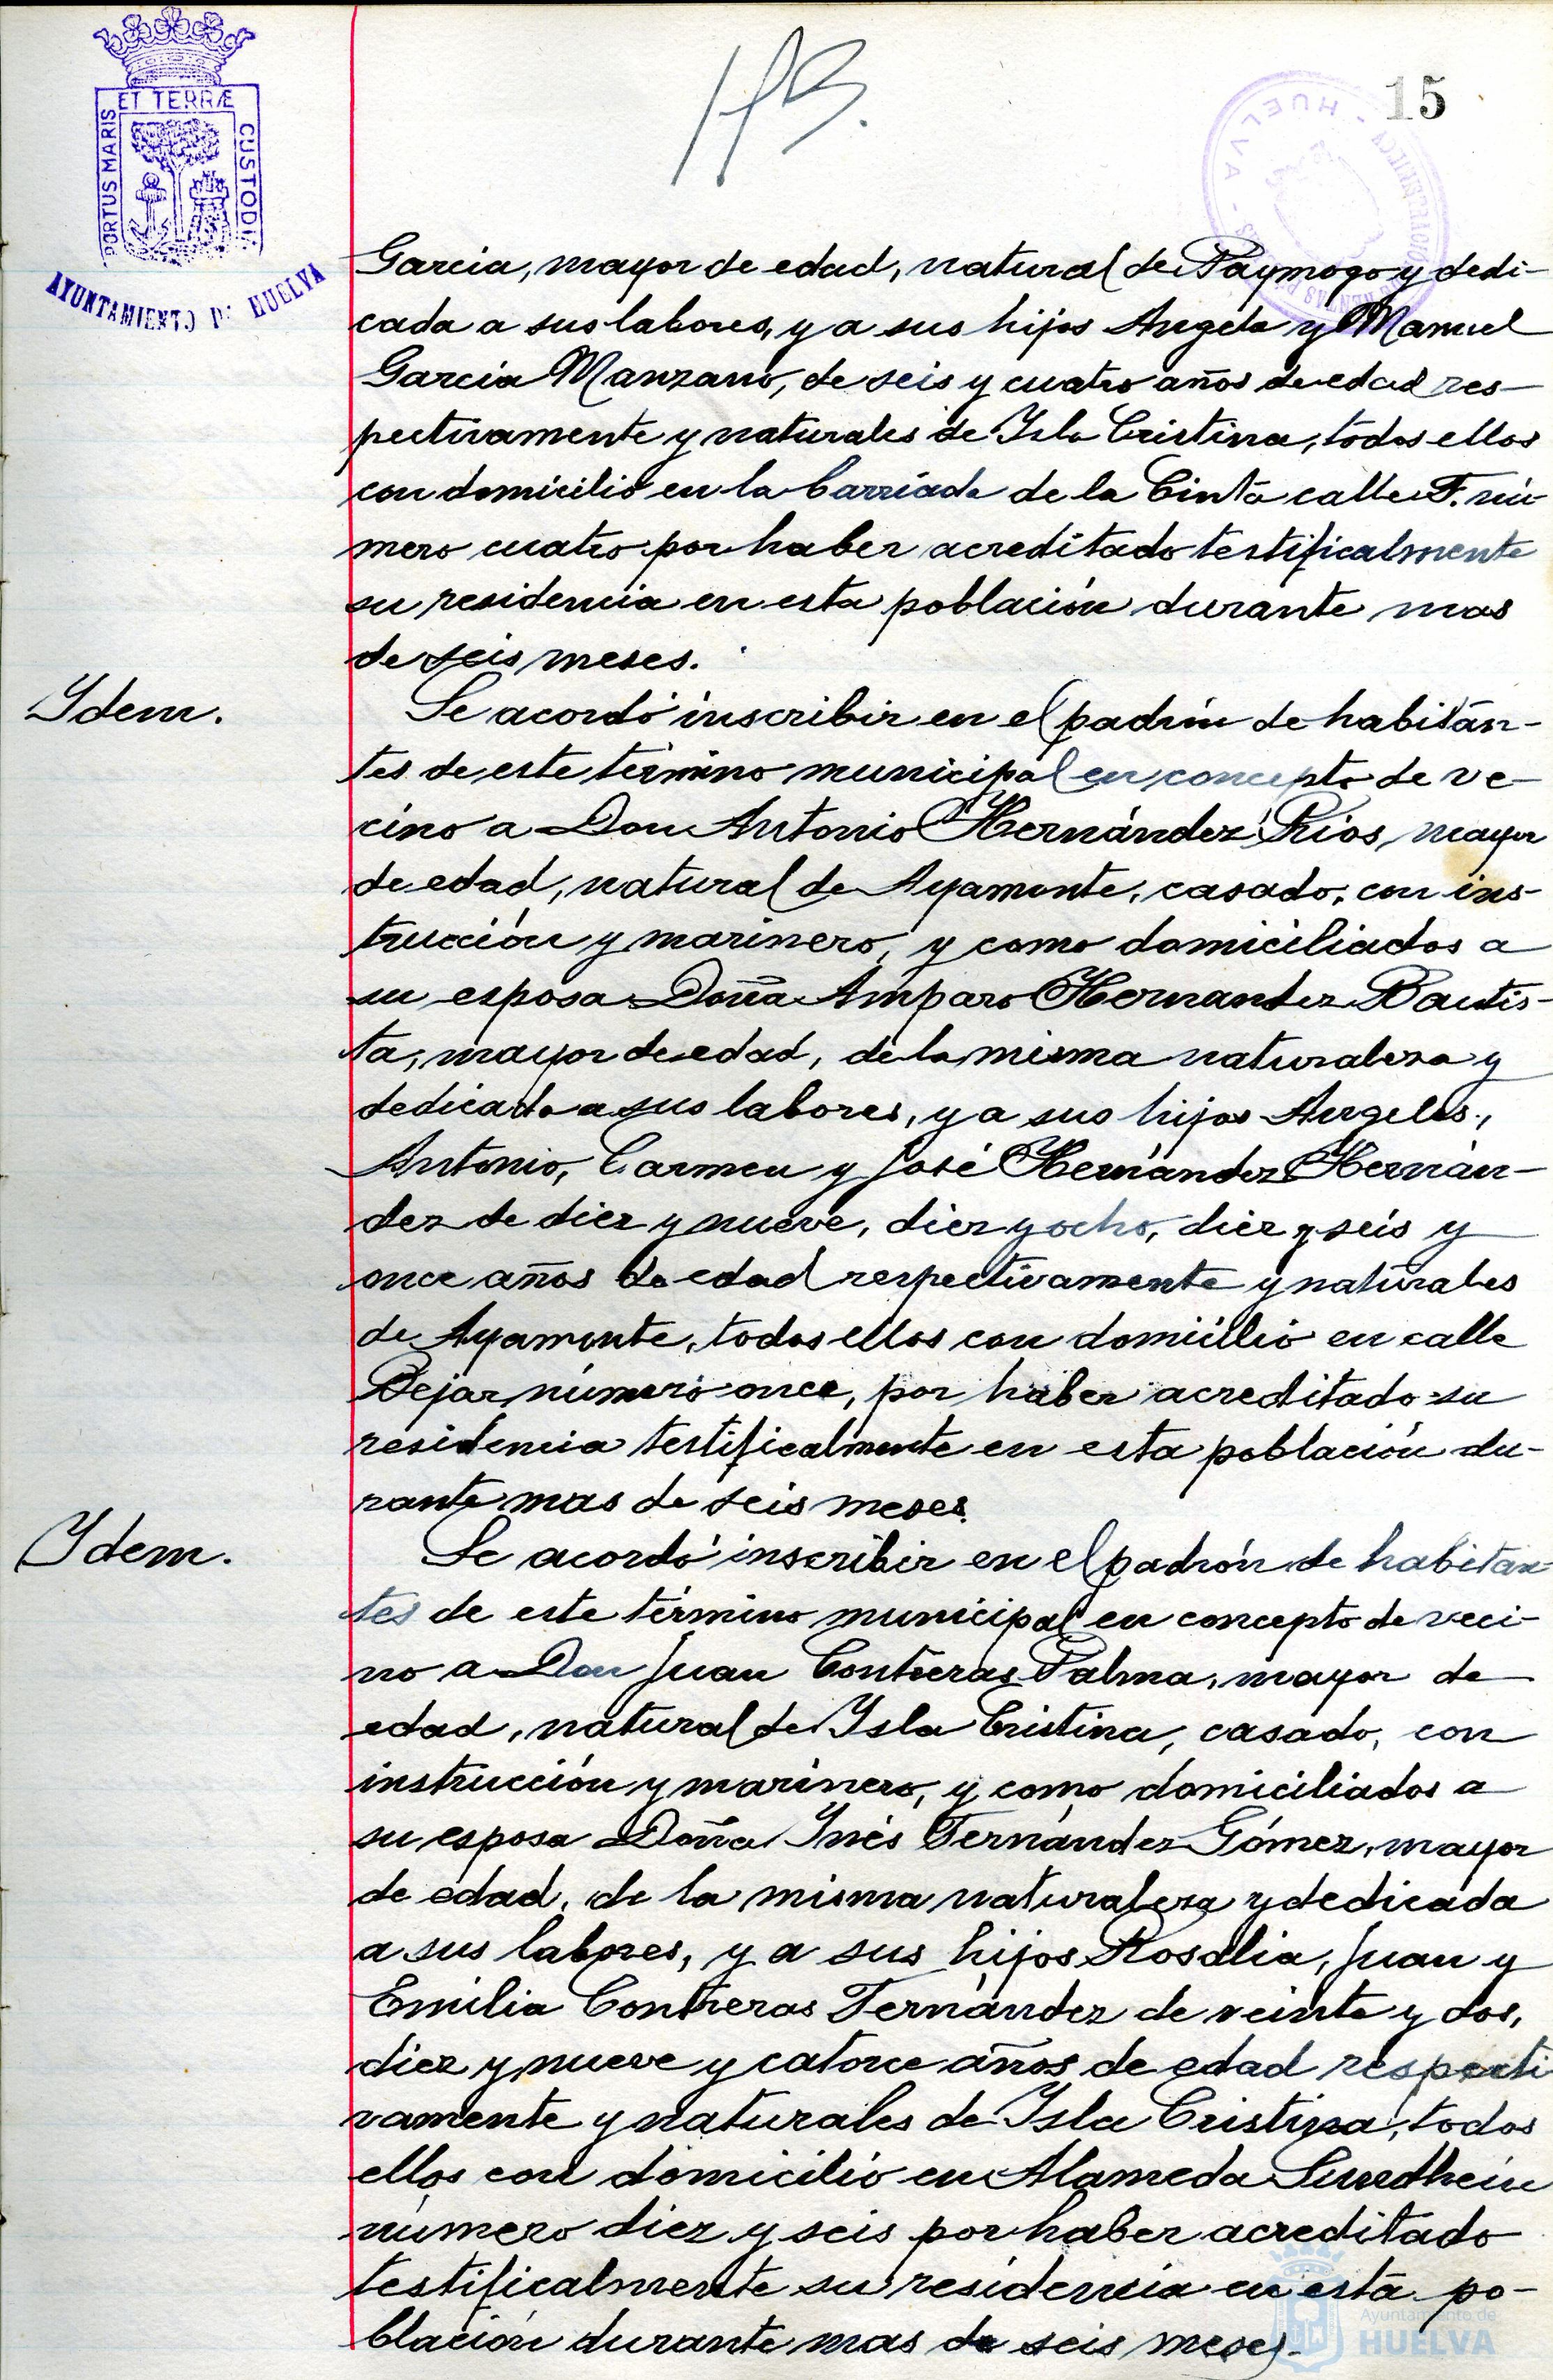 ET TERRÆ
PORTUS MARIS
CUSTODI
AYUNTAMIENTO DE HUELVA
15
HUELVA
Garcia, mayor de edad, natural de Paymogo y dedi-
cada a sus labores, y a sus hijos Angela y Manuel
Garcia Manzano, de seis y cuatro años de edad res-
pectivamente y naturales de Isla Cristina, todos ellos
con domicilio en la barriada de la Cinta calle F. nú-
mero cuatro por haber acreditado testificalmente
su residencia en esta población durante mas
de seis meses.
Ydem.
Se acordó inscribir en el padrón de habitan-
tes de este término municipal en concepto de ve-
cino a Don Antonio Hernández Rios, mayor
de edad, natural de Ayamonte, casado, con ins-
trucción y marinero, y como domiciliados a
su esposa Doña Amparo Hernandez Bautis-
ta, mayor de edad, de la misma naturaleza y
dedicada a sus labores, y a sus hijos Angeles,
Antonio, Carmen y José Hernández Hernán-
dez de diez y nueve, diez y ocho, diez y seis y
once años de edad respectivamente y naturales
de Ayamonte, todos ellos con domicilio en calle
Bejar número once, por haber acreditado su
residencia testificalmente en esta población du-
rante mas de seis meses.
Ydem.
Se acordó inscribir en el padrón de habitan
tes de este término municipal en concepto de veci-
no a Don Juan Contreras Palma, mayor de
edad, natural de Isla Cristina, casado, con
instrucción y marinero, y como domiciliados a
su esposa Doña Ynés Fernández Gómez, mayor
de edad, de la misma naturaleza y dedicada
a sus labores, y a sus hijos Rosalia, Juan y
Emilia Contreras Fernández de veinte y dos,
diez y nueve y catorce años de edad respecti
vamente y naturales de Isla Cristina, todos
ellos con domicilio en Alameda Sundhein
número diez y seis por haber acreditado
testificalmente su residencia en esta po-
blación durante mas de seis meses.
Ayuntamiento de
HUELVA